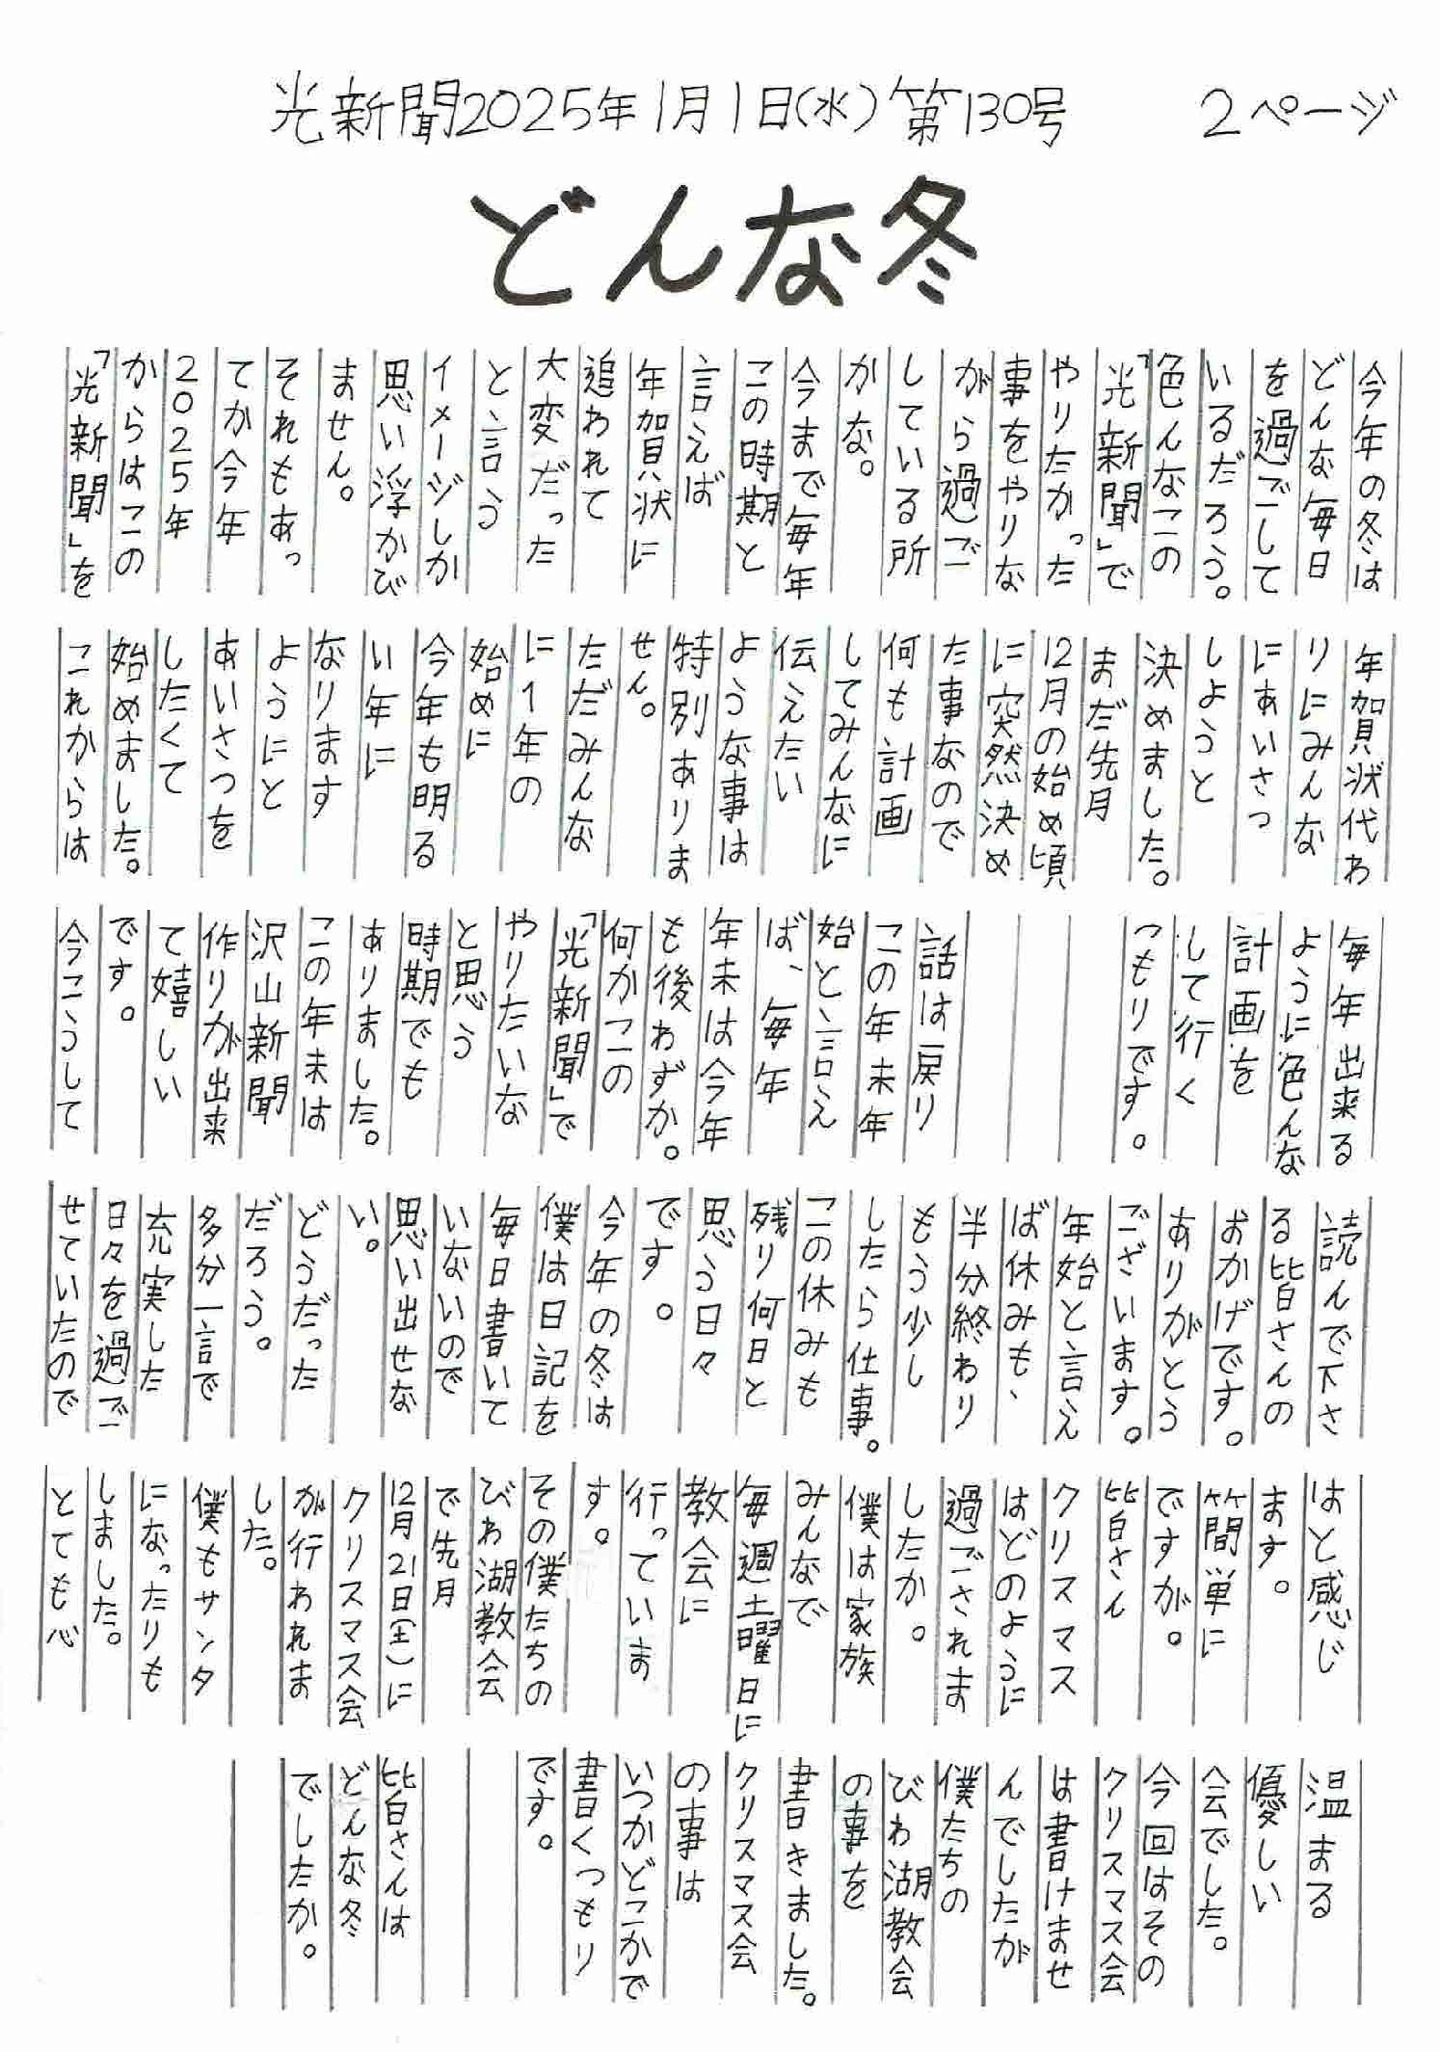 光新聞2025年1月1日(水)第130号　2ページ
どんな冬
今年の冬は
どんな毎日
を過ごして
いるだろう。
色んなこの
「光新聞」で
やりたかった
事をやりな
がら過ご
している所
かな。
今まで毎年
この時期と
言えば
年賀状に
追われて
大変だった
と言う
イメージしか
思い浮かび
ません。
それもあっ
てか今年
2025年
からはこの
「光新聞」を
年賀状代わ
りにみんな
にあいさつ
しようと
決めました。
まだ先月
12月の始め頃
に突然決め
た事なので
何も計画
してみんなに
伝えたい
ような事は
特別ありま
せん。
ただみんな
に1年の
始めに
今年も明る
い年に
なります
ようにと
あいさつを
したくて
始めました。
これからは
毎年出来る
ように色んな
計画を
して行く
つもりです。
話は戻り
この年末年
始と言え
ば、毎年
年末は今年
も後わずか。
何かこの
「光新聞」で
やりたいな
と思う
時期でも
ありました。
この年末は
沢山新聞
作りが出来
て嬉しい
です。
今こうして
読んで下さ
る皆さんの
おかげです。
ありがとう
ございます。
年始と言え
ば休みも、
半分終わり
もう少し
したら仕事。
この休みも
残り何日と
思う日々
です。
今年の冬は
僕は日記を
毎日書いて
いないので
思い出せな
い。
どうだった
だろう。
多分一言で
充実した
日々を過ご
せていたので
はと感じ
ます。
簡単に
ですが。
皆さん
クリスマス
はどのように
過ごされま
したか。
僕は家族
みんなで
毎週土曜日に
教会に
行っていま
す。
その僕たちの
びわ湖教会
で先月
12月21日(土)に
クリスマス会
が行われま
した。
僕もサンタ
になったりも
しました。
とても心
温まる
優しい
会でした。
今回はその
クリスマス会
は書けませ
んでしたが
僕たちの
びわ湖教会
の事を
書きました。
クリスマス会
の事は
いつかどこかで
書くつもり
です。
皆さんは
どんな冬
でしたか。